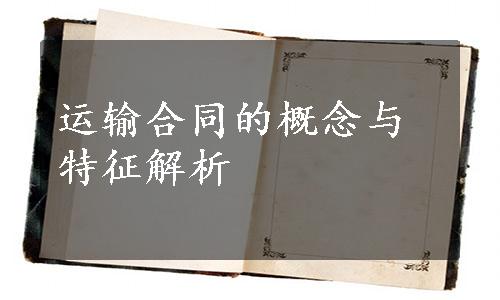 运输合同的概念与
特征解析